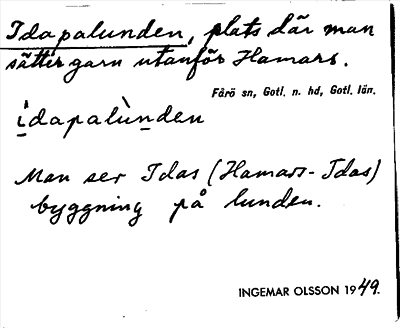 Idapalunden, plats där man
sätter garn utanför Hamars.
Fårö sn, Gotl. n. hd, Gotl. län.
ı̲́dapalùn̲den
Man ser Idas (Hamars-Idas)
byggning på lunden.
INGEMAR OLSSON 1949.